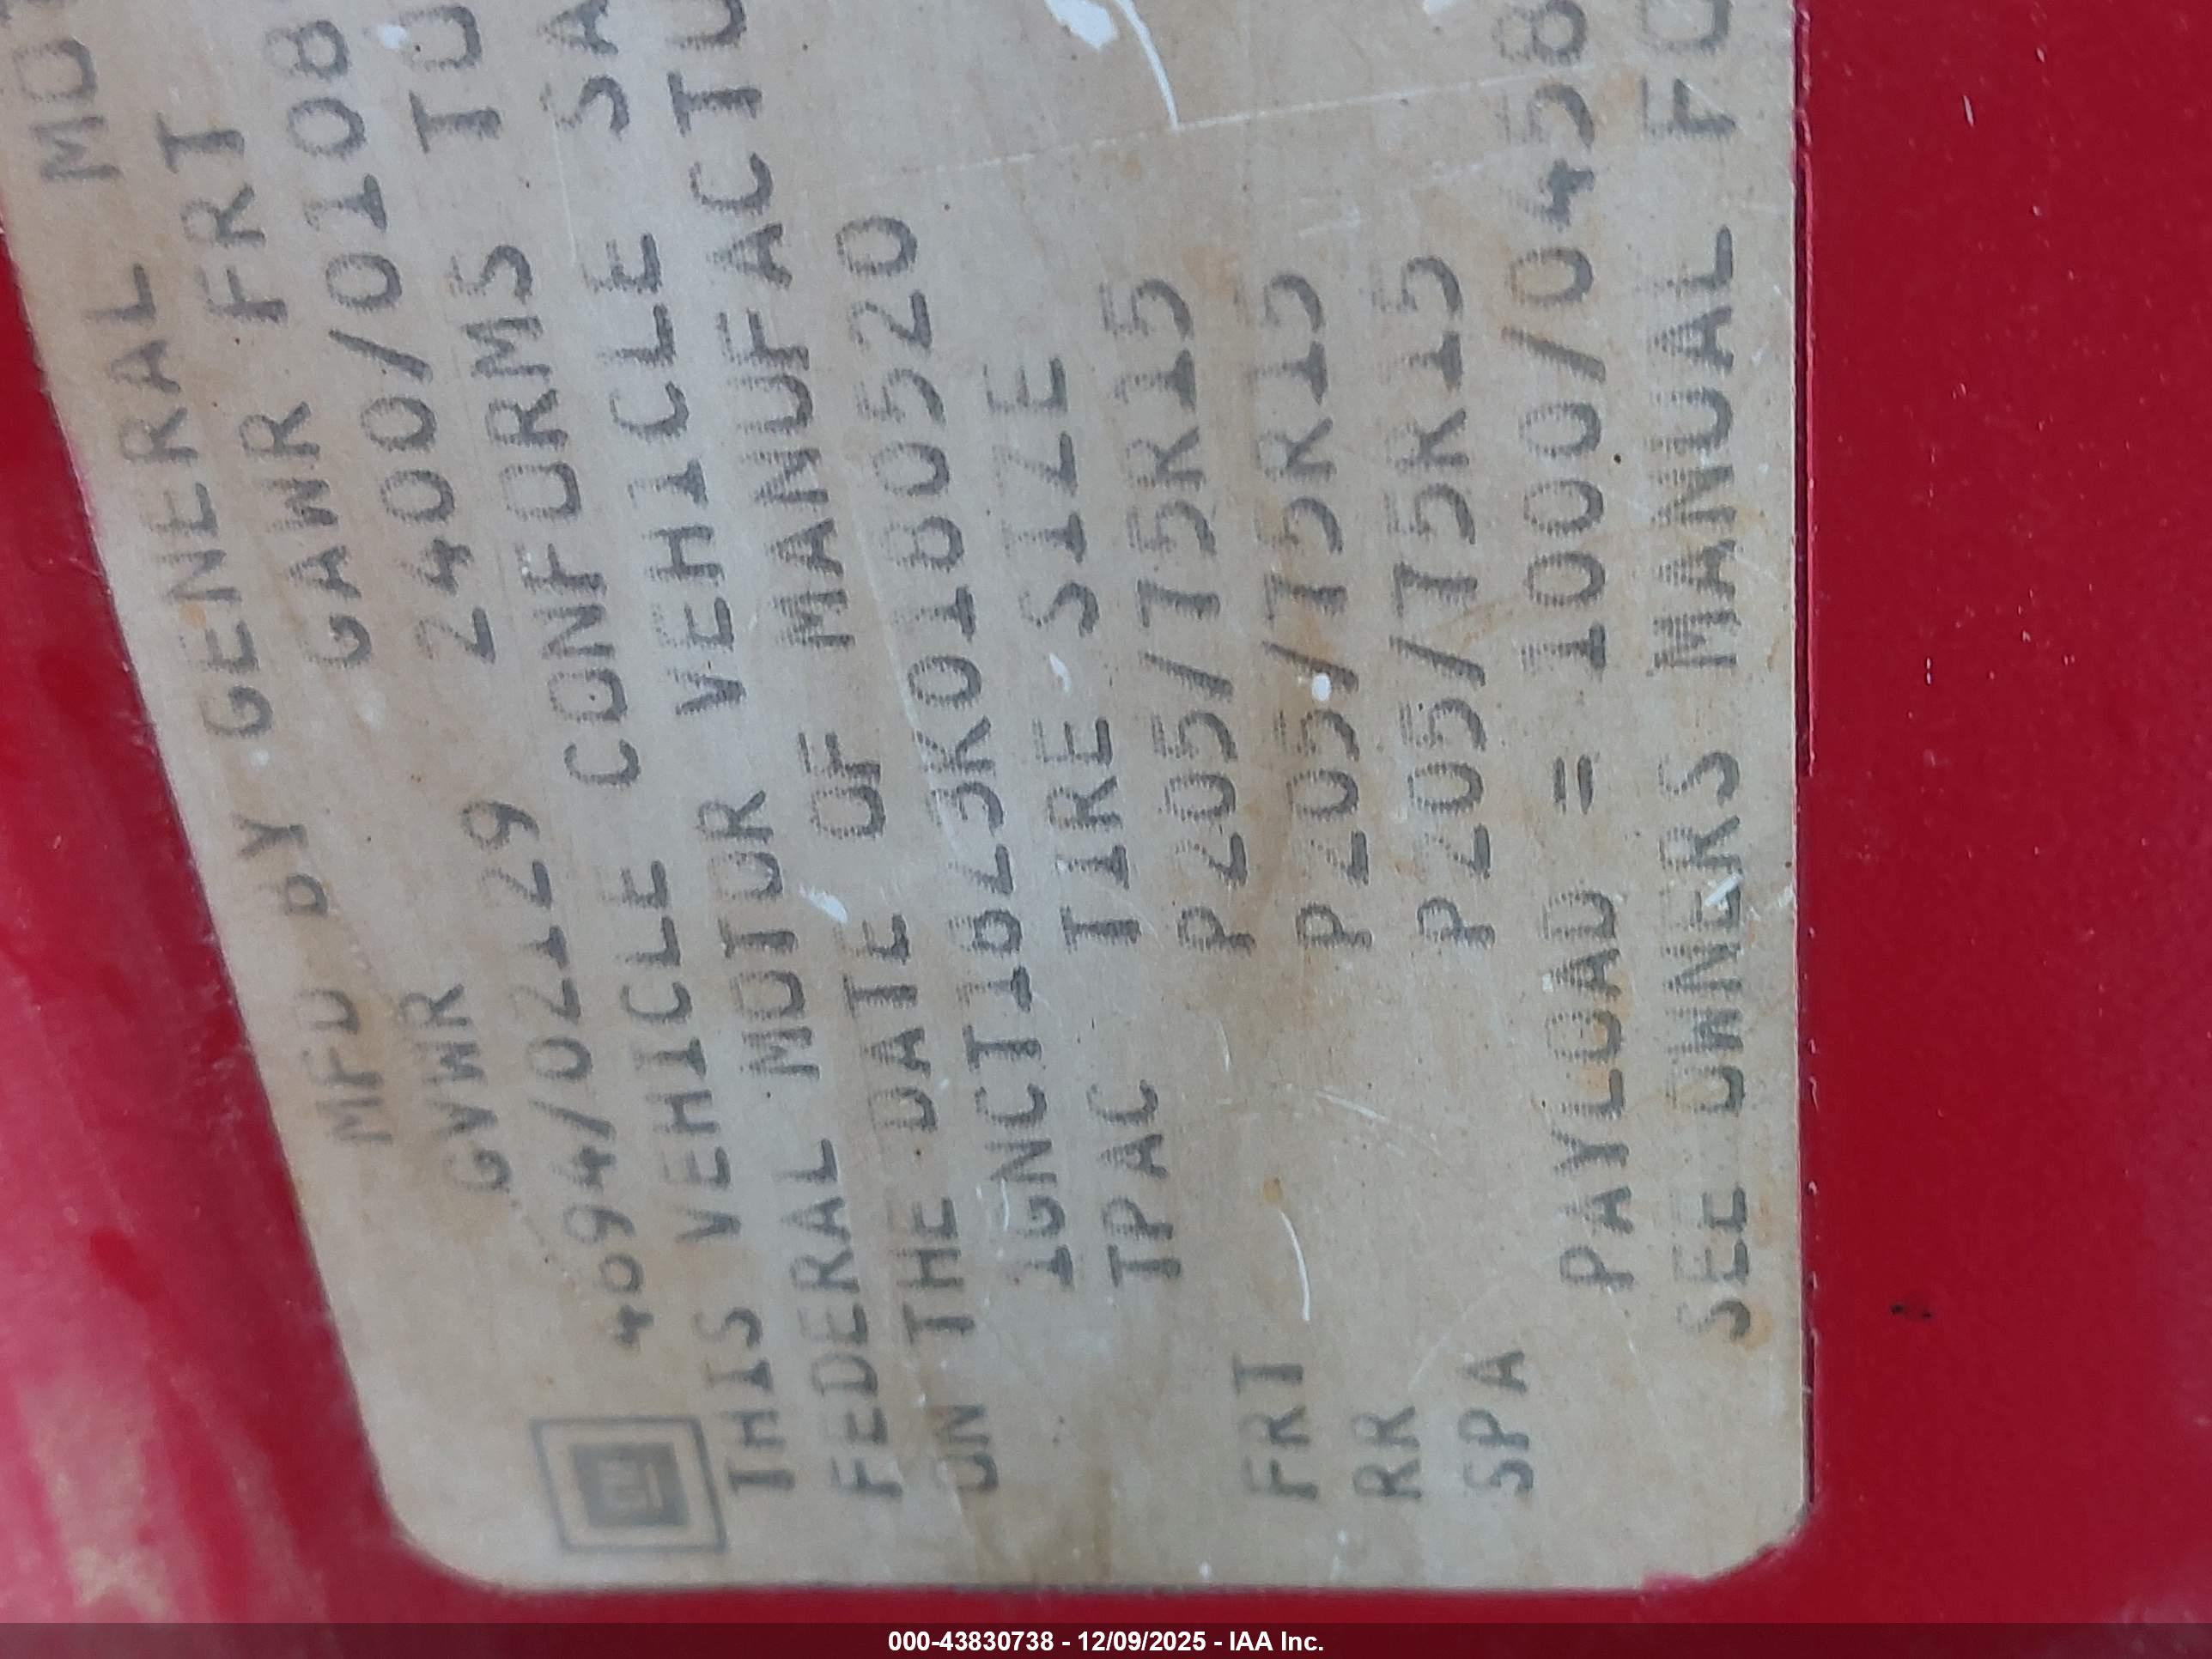 MFD BY GENERAL MOT
GVWR GAWR FRT
4094/02129 2400/0108
THIS VEHICLE CONFORMS TO
FEDERAL MOTOR VEHICLE SA
ON THE DATE OF MANUFACTU
1GNCT18Z3K0180520
TPAC TIRE SIZE
FRT P205/75R15
RR P205/75R15
SPA P205/75R15
PAYLOAD = 1000/0458
SEE OWNERS MANUAL FO
GM
000-43830738 - 12/09/2025 - IAA Inc.